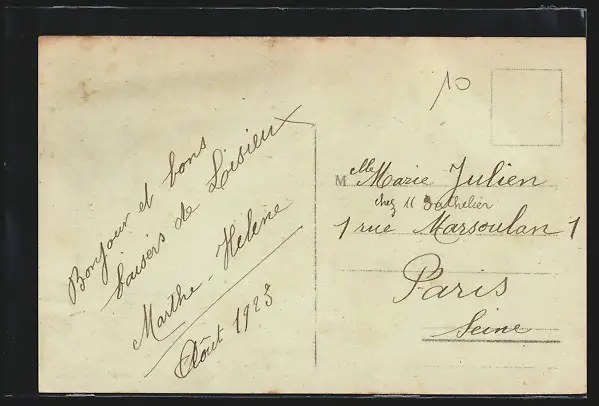 Bonjour et bons
baisers de Lisieux
Marthe - Hélène
Août 1923
10
Melle Marie Julien
chez M
1 rue Marsoulan 1
Paris
Seine